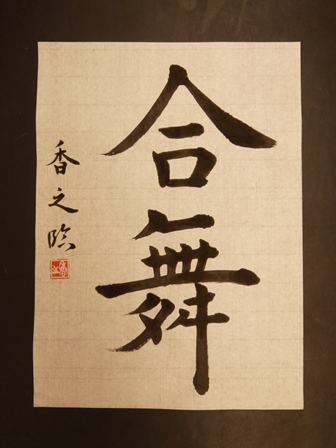 合舞
香之臨